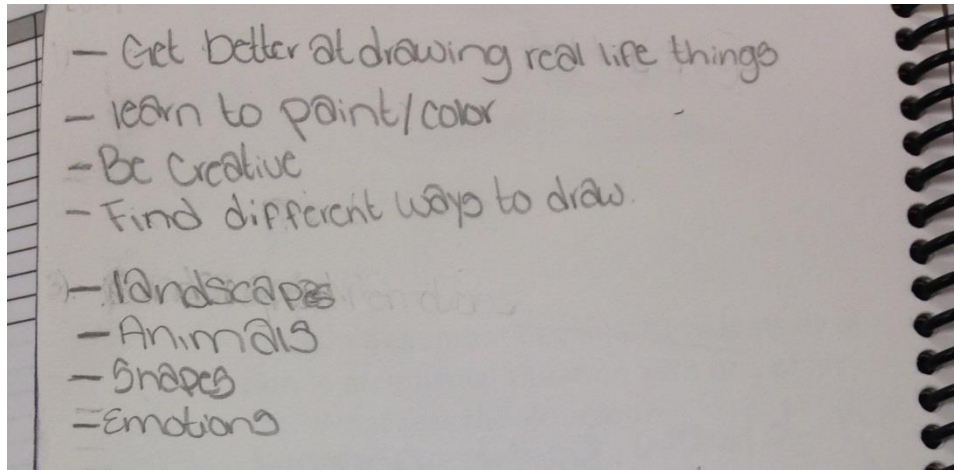 - Get better at drawing real life things
- learn to paint/color
- Be Creative
- Find different ways to draw.
- landscapes
- Animals
- Shapes
- Emotions